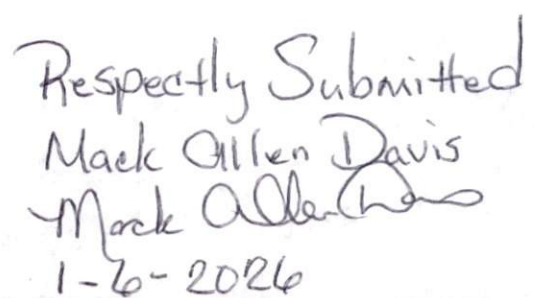 Respectly Submitted
Mack Allen Davis
Mack Allen Davis
1-6-2026